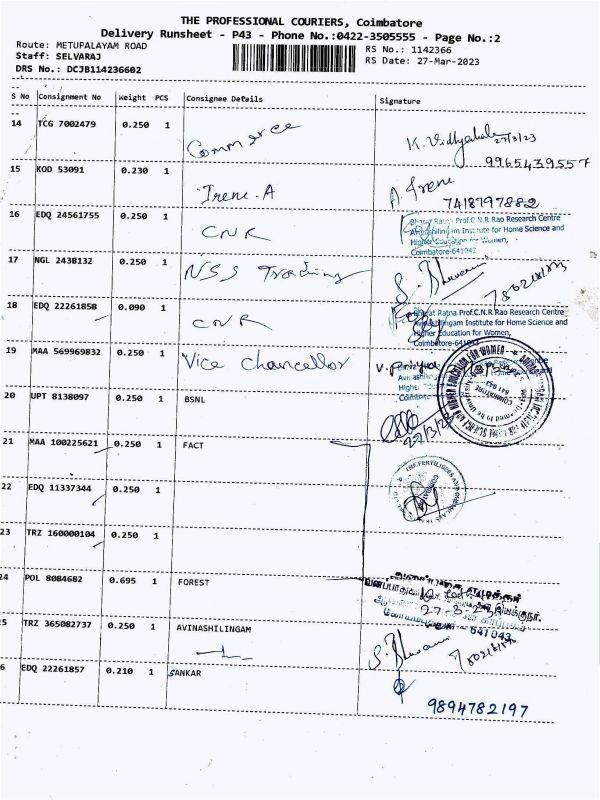 THE PROFESSIONAL COURIERS, Coimbatore
Delivery Runsheet - P43 - Phone No.:0422-3505555 - Page No.:2
Route: METUPALAYAM ROAD
RS No.: 1142366
Staff: SELVARAJ
RS Date: 27-Mar-2023
DRS No.: DCJB114236602
S No Consignment No Weight PCS Consignee Details Signature
14 TCG 7002479 0.250 1 Commerce
27/3/23
9965439557
15 KOD 53091 0.230 1 Irene. A A. Irene
7418797882
16 EDQ 24561755 0.250 1 CNR
Bharat Ratna Prof.C.N.R Rao Research Centre
Avinashilingam Institute for Home Science and
Higher Education for Women,
Coimbatore-641042
17 NGL 2438132 0.250 1 NSS Trading
18 EDQ 22261858 0.090 1 CNR
Bharat Ratna Prof.C.N.R Rao Research Centre
Avinashilingam Institute for Home Science and
Higher Education for Women,
19 MAA 569969832 0.250 1 Vice Chancellor
20 UPT 8138097 0.250 1 BSNL
27/3/23
21 MAA 100225621 0.250 1 FACT
22 EDQ 11337344 0.250 1
23 TRZ 160000104 0.250 1
24 POL 8084682 0.695 1 FOREST
641 043
25 TRZ 365082737 0.250 1 AVINASHILINGAM
26 EDQ 22261857 0.210 1 SANKAR
9894782197